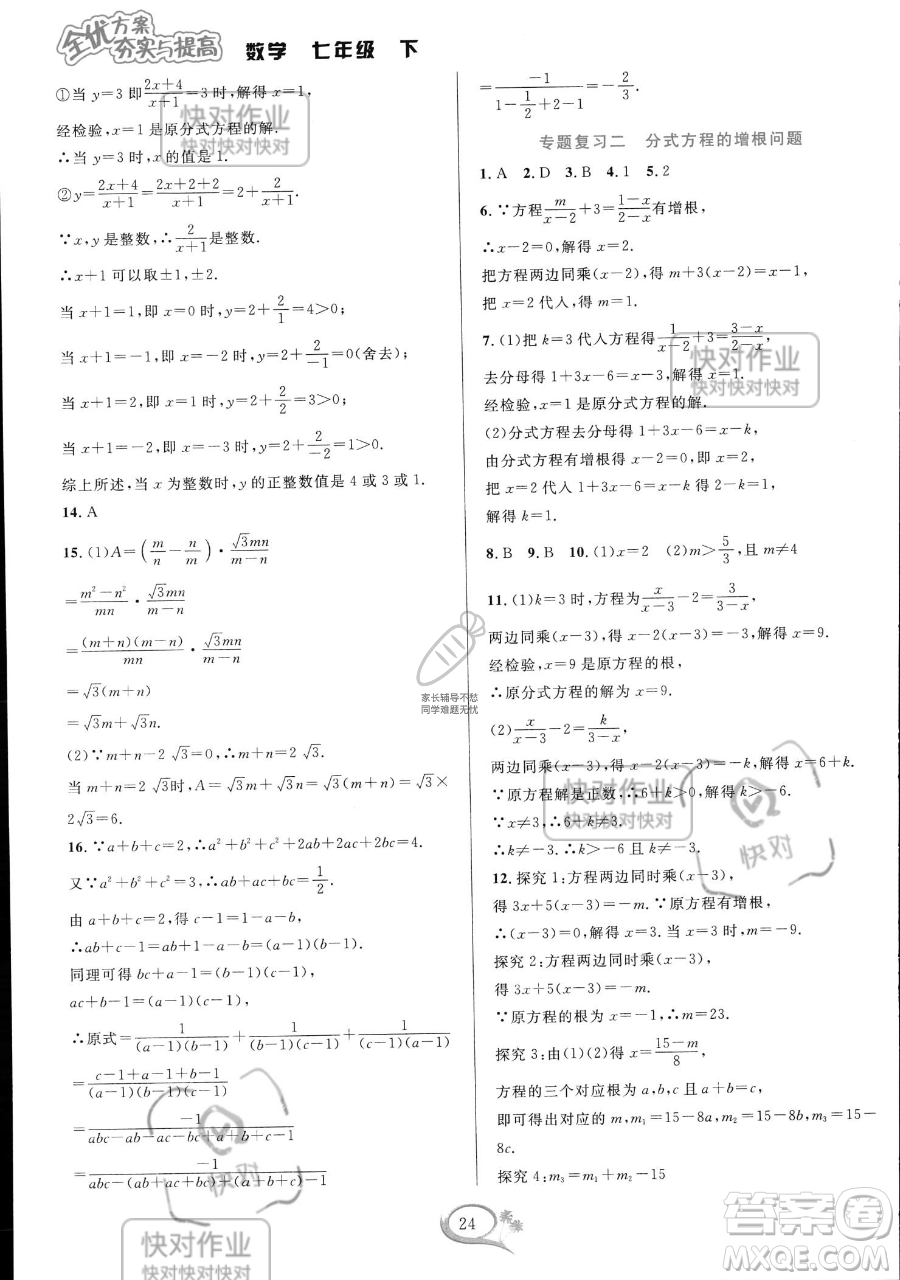 全优方案
夯实与提高
数学 七年级 下
①当 y=3 即\frac{2x+4}{x+1}=3 时,解得 x=1,
经检验,x=1 是原分式方程的解.
∴当 y=3 时,x 的值是 1.
②y=\frac{2x+4}{x+1}=\frac{2x+2+2}{x+1}=2+\frac{2}{x+1}.
∵x,y 是整数,∴\frac{2}{x+1}是整数.
∴x+1 可以取±1,±2.
当 x+1=1,即 x=0 时,y=2+\frac{2}{1}=4>0;
当 x+1=-1,即 x=-2 时,y=2+\frac{2}{-1}=0(舍去);
当 x+1=2,即 x=1 时,y=2+\frac{2}{2}=3>0;
当 x+1=-2,即 x=-3 时,y=2+\frac{2}{-2}=1>0.
综上所述,当 x 为整数时,y 的正整数值是 4 或 3 或 1.
14. A
15. (1)A=(\frac{m}{n}-\frac{n}{m})·\frac{\sqrt{3}mn}{m-n}
=\frac{m²-n²}{mn}·\frac{\sqrt{3}mn}{m-n}
=\frac{(m+n)(m-n)}{mn}·\frac{\sqrt{3}mn}{m-n}
=√3(m+n)
=√3m+√3n.
(2)∵m+n-2√3=0,∴m+n=2√3.
当 m+n=2√3时,A=√3m+√3n=√3(m+n)=√3×
2√3=6.
16. ∵a+b+c=2,∴a²+b²+c²+2ab+2ac+2bc=4.
又∵a²+b²+c²=3,∴ab+ac+bc=\frac{1}{2}.
由 a+b+c=2,得 c-1=1-a-b,
∴ab+c-1=ab+1-a-b=(a-1)(b-1).
同理可得 bc+a-1=(b-1)(c-1),
ac+b-1=(a-1)(c-1),
∴原式=\frac{1}{(a-1)(b-1)}+\frac{1}{(b-1)(c-1)}+\frac{1}{(a-1)(c-1)}
=\frac{c-1+a-1+b-1}{(a-1)(b-1)(c-1)}
=\frac{-1}{abc-ab-ac-bc+a+b+c-1}
=\frac{-1}{abc-(ab+ac+bc)+(a+b+c)-1}
=\frac{-1}{1-\frac{1}{2}+2-1}=-\frac{2}{3}.
专题复习二 分式方程的增根问题
1. A 2. D 3. B 4. 1 5. 2
6. ∵方程\frac{m}{x-2}+3=\frac{1-x}{2-x}有增根,
∴x-2=0,解得 x=2.
把方程两边同乘(x-2),得 m+3(x-2)=x-1,
把 x=2 代入,得 m=1.
7. (1)把 k=3 代入方程得\frac{1}{x-2}+3=\frac{3-x}{2-x},
去分母得 1+3x-6=x-3,解得 x=1.
经检验,x=1 是原分式方程的解.
(2)分式方程去分母得 1+3x-6=x-k,
由分式方程有增根,得到 x-2=0,即 x=2,
把 x=2 代入 1+3x-6=x-k 得 2-k=1,
解得 k=1.
8. B 9. B 10. (1)x=2 (2)m>\frac{5}{3},且 m≠4
11. (1)k=3 时,方程为\frac{x}{x-3}-2=\frac{3}{3-x},
两边同乘(x-3),得 x-2(x-3)=-3,解得 x=9.
经检验,x=9 是原方程的根,
∴原分式方程的解为 x=9.
(2)\frac{x}{x-3}-2=\frac{k}{3-x},
两边同乘(x-3),得 x-2(x-3)=-k,解得 x=6+k.
∵原方程解是正数,∴6+k>0,解得 k>-6.
∵x≠3,∴6+k≠3.
∴k≠-3.∴k>-6 且 k≠-3.
12. 探究 1:方程两边同时乘(x-3),
得 3x+5(x-3)=-m.∵原方程有增根,
∴(x-3)=0,解得 x=3.当 x=3 时,m=-9.
探究 2:方程两边同时乘(x-3),
得 3x+5(x-3)=-m.
∵原方程的根为 x=-1,∴m=23.
探究 3:由(1)(2)得 x=\frac{15-m}{8},
方程的三个对应根为 a,b,c,
即可得出对应的 m,m₁=15-8a,m₂=15-8b,m₃=15-
8c.
探究 4:m₃=m₁+m₂-15
24
快对作业
快对快对快对
快对作业
快对快对快对
家长辅导不愁
同学难题无忧
快对作业
快对快对快对
快对
快对
快对
快对作业
快对快对快对
快对作业
快对快对快对
答案卷
MXQE.COM